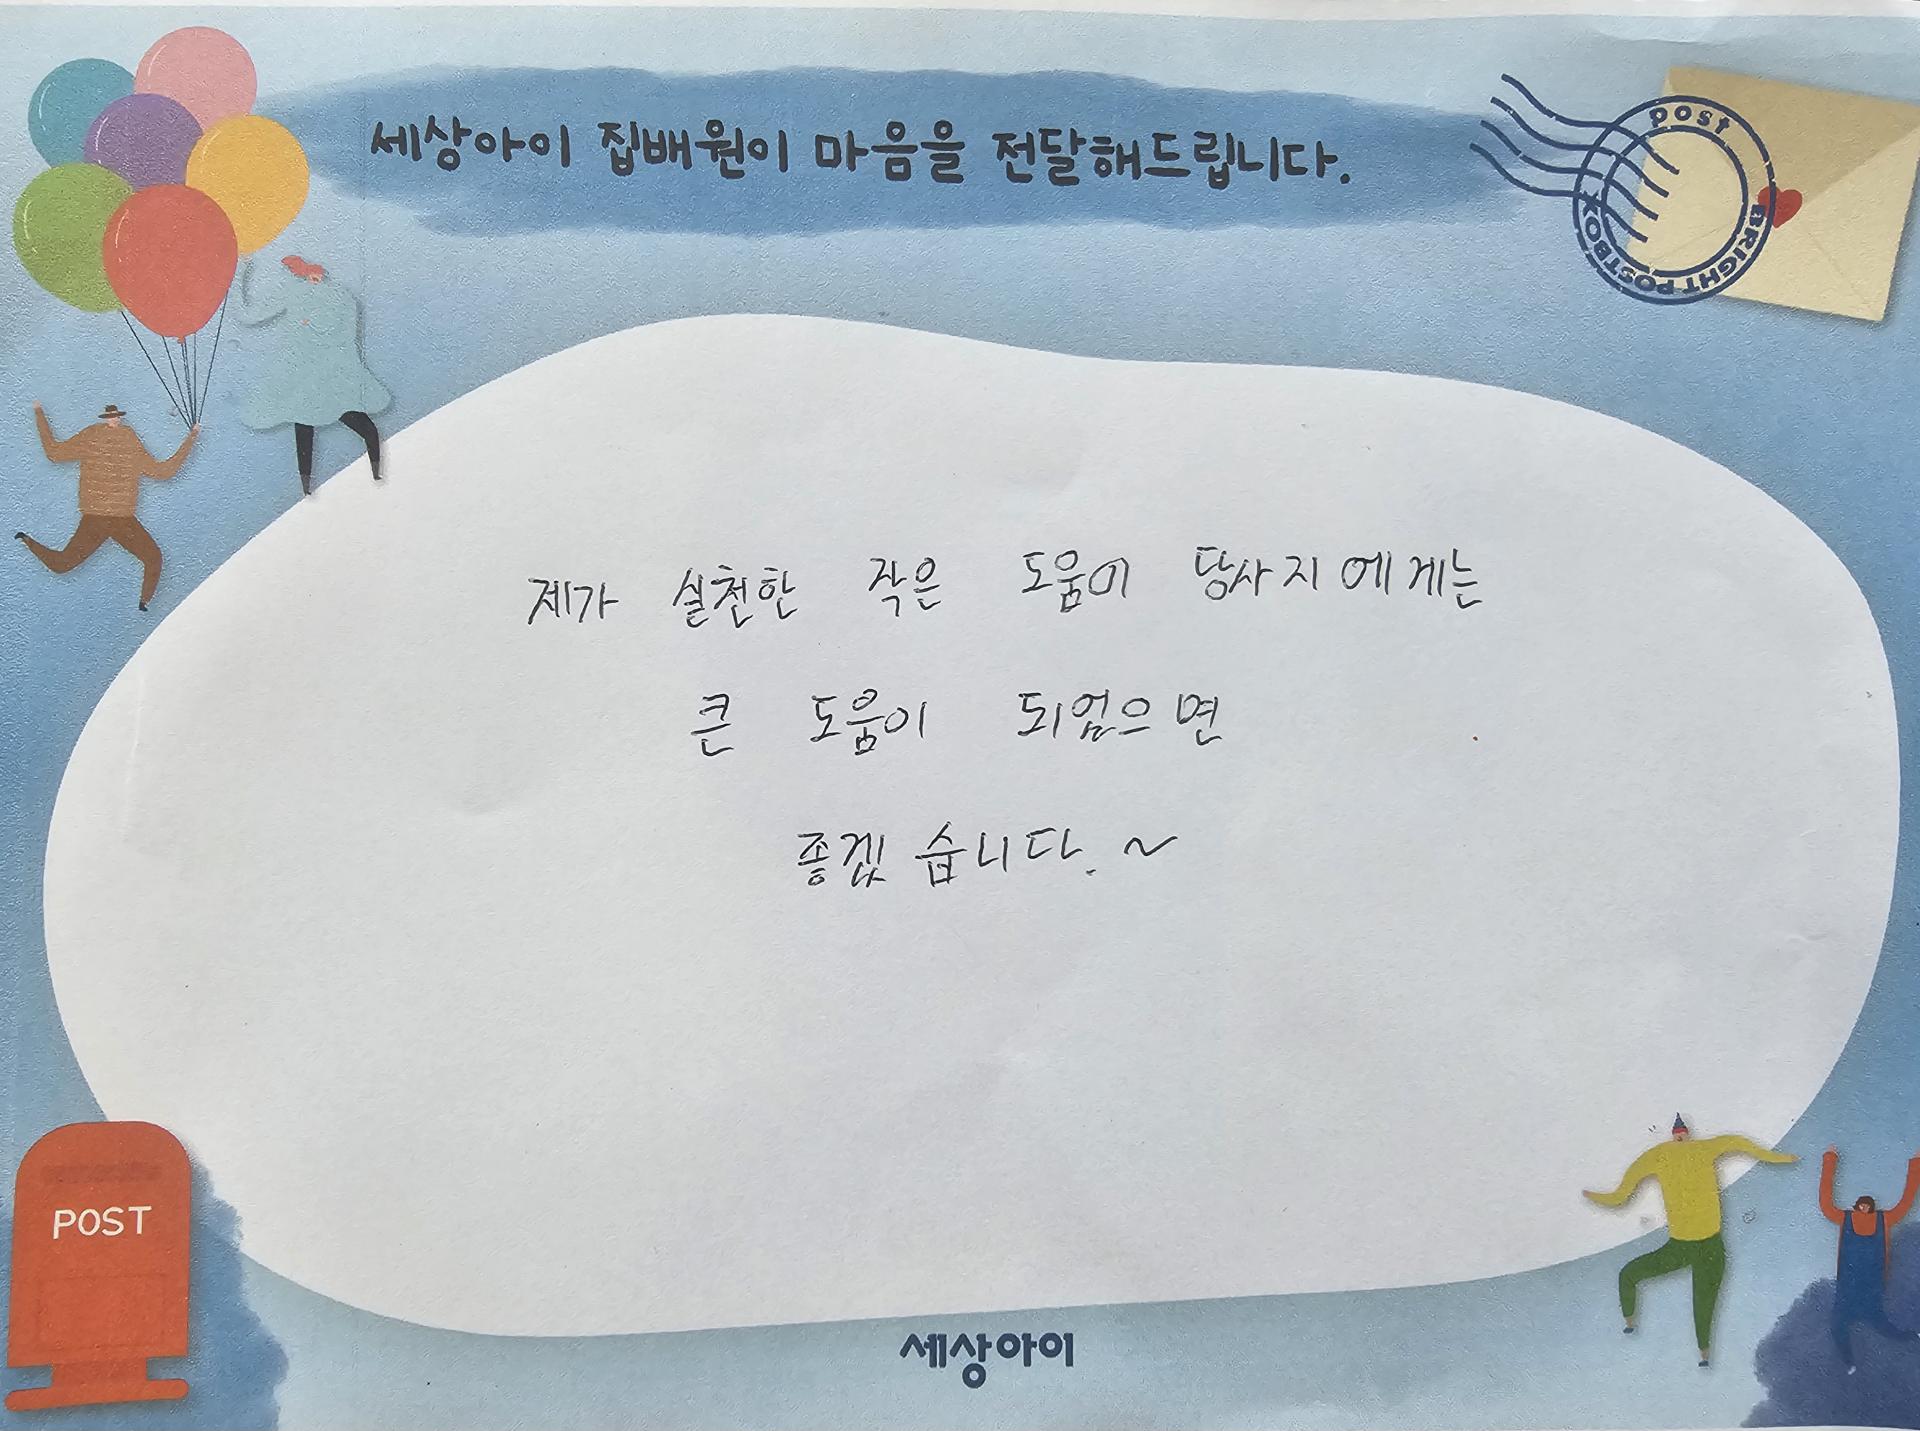 세상아이 집배원이 마음을 전달해드립니다.
post
BRIGHT POSTBOX
제가 실천한 작은 도움이 당사지에게는
큰 도움이 되었으면
좋겠습니다. ~
POST
세상아이